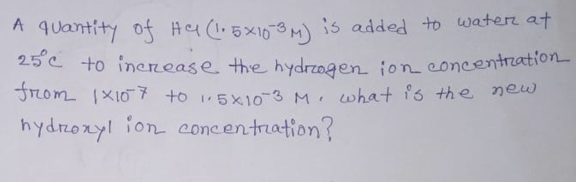 A quantity of HCl (1.5×10⁻³M) is added to water at
25°C to increase the hydrogen ion concentration
from 1×10⁻⁷ to 1.5×10⁻³ M. what is the new
hydroxyl ion concentration?